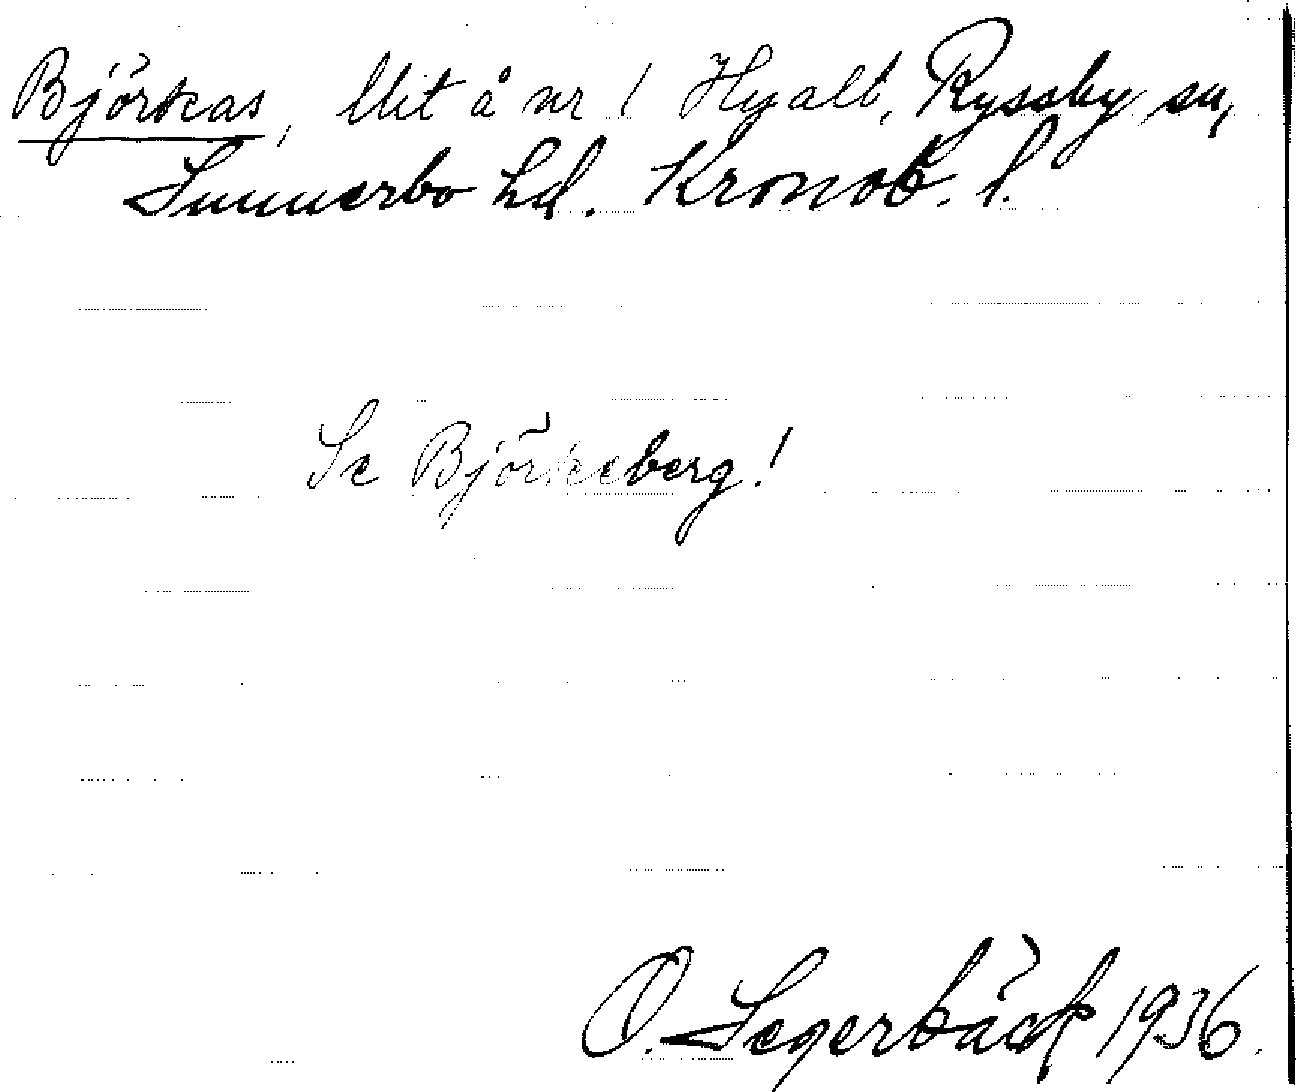 Björkas, Utt å nr 1 Hyalt, Ryssby sn,
Sunnerbo hd. Kronob. l.
Se Björkeberg!
O. Segerbäck 1936.